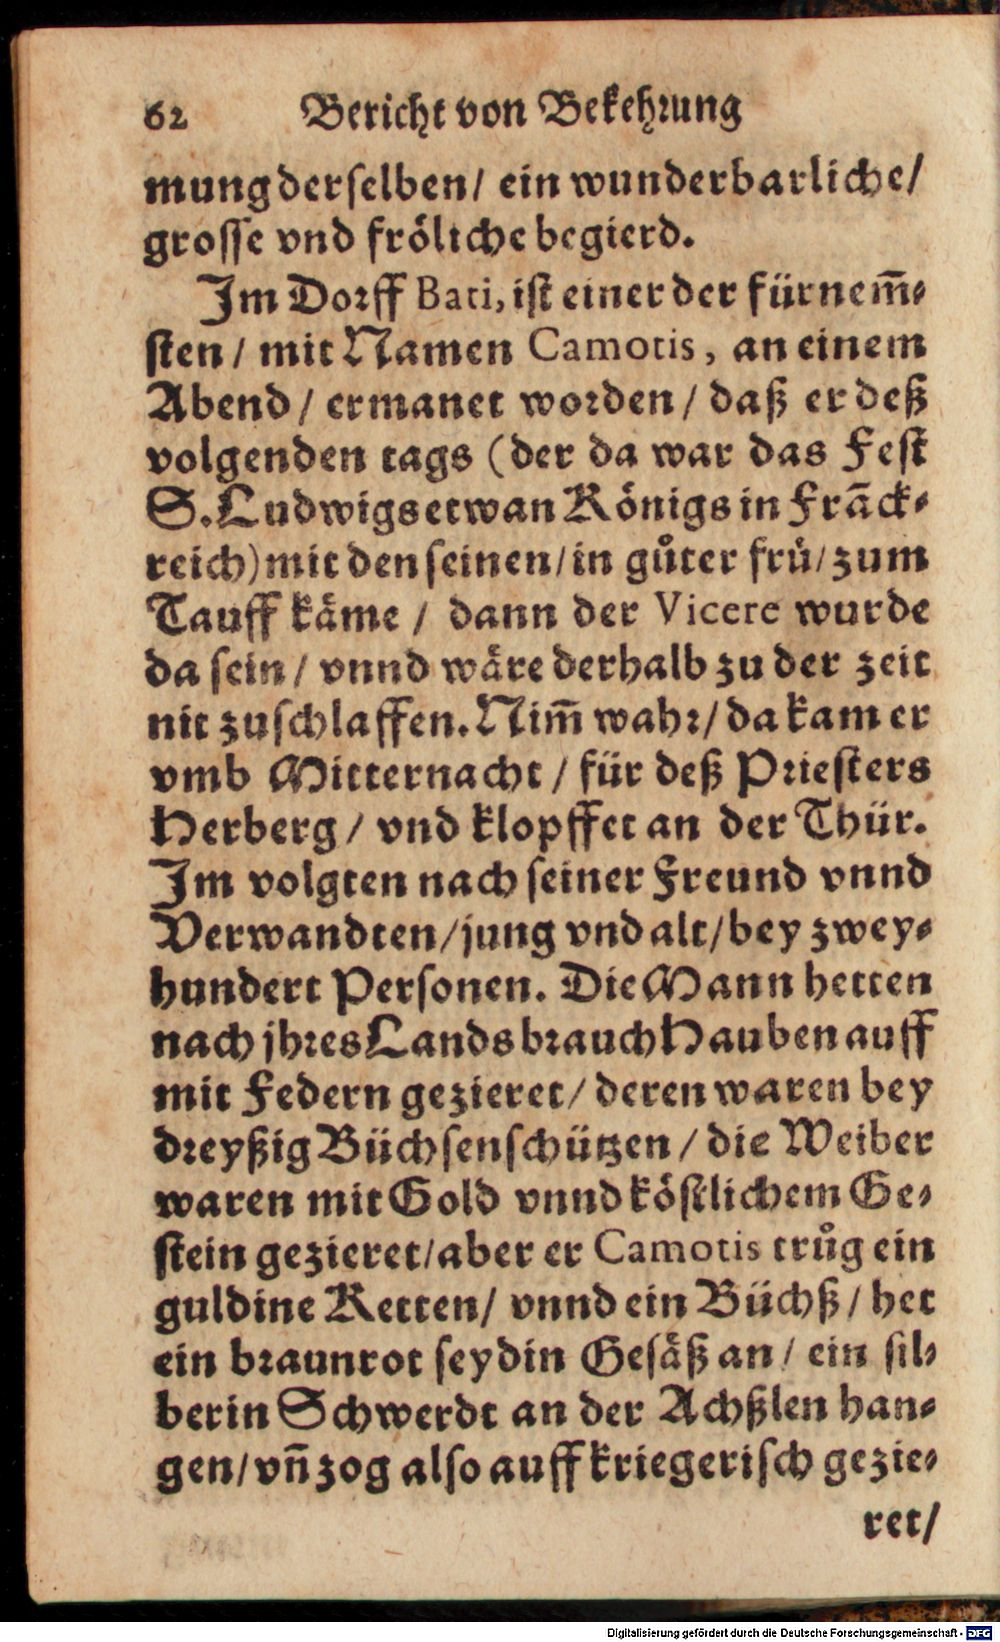 62 Bericht von Bekehrung
mung derselben/ ein wunderbarliche/
grosse vnd fröliche begierd.
Im Dorff Bati, ist einer der fürnem̄-
sten/ mit Namen Camotis, an einem
Abend/ ermanet worden/ daß er deß
volgenden tags (der da war das Fest
S. Ludwigs etwan Königs in Frāck-
reich) mit den seinen/ in gůter frü/ zum
Tauff käme/ dann der Vicere wurde
da sein/ vnnd wäre derhalb zu der zeit
nit zuschlaffen. Nim̄ wahr/ da kam er
vmb Mitternacht/ für deß Priesters
Herberg/ vnd klopffet an der Thür.
Im volgten nach seiner Freund vnnd
Verwandten/ jung vnd alt/ bey zwey-
hundert Personen. Die Mann hetten
nach jhres Lands brauch Hauben auff
mit Federn gezieret/ deren waren bey
dreyßig Büchsenschützen/ die Weiber
waren mit Gold vnnd köstlichem Ge-
stein gezieret/ aber er Camotis trůg ein
guldine Ketten/ vnnd ein Büchß/ het
ein braunrot seydin Gesäß an/ ein sil-
berin Schwerdt an der Achßlen han-
gen/ vn̄ zog also auff kriegerisch gezie-
ret/
Digitalisierung gefördert durch die Deutsche Forschungsgemeinschaft - DFG